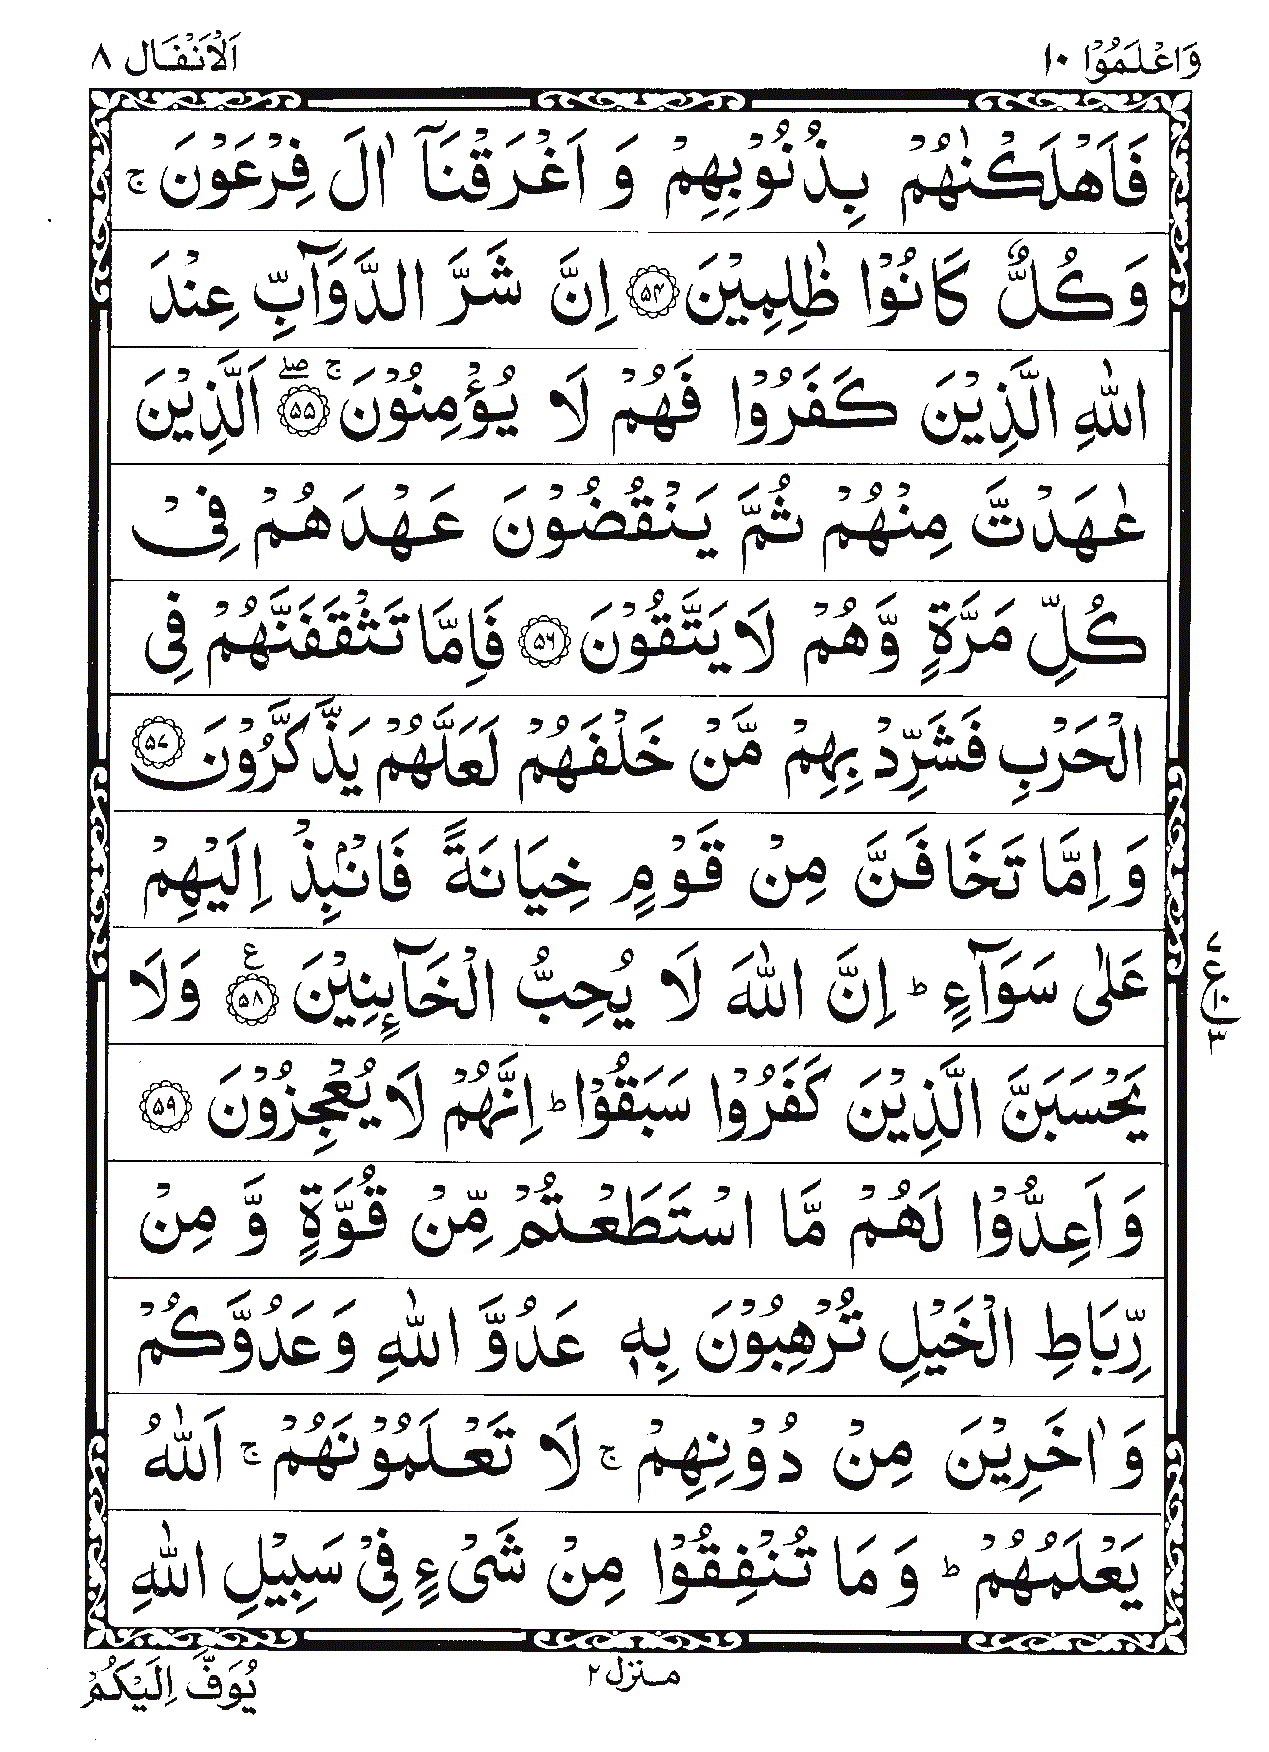 وَاعْلَمُوْۤا ١٠
اَلْاَنْفَال ٨
فَاَهْلَكْنٰهُمْ بِذُنُوْبِهِمْ وَ اَغْرَقْنَاۤ اٰلَ فِرْعَوْنَ ۚ
وَكُلٌّ كَانُوْا ظٰلِمِيْنَ ﴿۵۴﴾ اِنَّ شَرَّ الدَّوَآبِّ عِنْدَ
اللّٰهِ الَّذِيْنَ كَفَرُوْا فَهُمْ لَا يُؤْمِنُوْنَ ۖۚ ﴿۵۵﴾ اَلَّذِيْنَ
عٰهَدْتَّ مِنْهُمْ ثُمَّ يَنْقُضُوْنَ عَهْدَهُمْ فِيْ
كُلِّ مَرَّةٍ وَّهُمْ لَا يَتَّقُوْنَ ﴿۵۶﴾ فَاِمَّا تَثْقَفَنَّهُمْ فِي
الْحَرْبِ فَشَرِّدْ بِهِمْ مَّنْ خَلْفَهُمْ لَعَلَّهُمْ يَذَّكَّرُوْنَ ﴿۵۷﴾
وَاِمَّا تَخَافَنَّ مِنْ قَوْمٍ خِيَانَةً فَانْۢبِذْ اِلَيْهِمْ
عَلٰى سَوَآءٍ ؕ اِنَّ اللّٰهَ لَا يُحِبُّ الْخَآىِٕنِيْنَ ﴿۵۸﴾ ع وَلَا
٧ ع ١٠ ٣
يَحْسَبَنَّ الَّذِيْنَ كَفَرُوْا سَبَقُوْا ؕ اِنَّهُمْ لَا يُعْجِزُوْنَ ﴿۵۹﴾
وَاَعِدُّوْا لَهُمْ مَّا اسْتَطَعْتُمْ مِّنْ قُوَّةٍ وَّ مِنْ
رِّبَاطِ الْخَيْلِ تُرْهِبُوْنَ بِهٖ عَدُوَّ اللّٰهِ وَعَدُوَّكُمْ
وَاٰخَرِيْنَ مِنْ دُوْنِهِمْ ۚ لَا تَعْلَمُوْنَهُمْ ۚ اَللّٰهُ
يَعْلَمُهُمْ ؕ وَ مَا تُنْفِقُوْا مِنْ شَيْءٍ فِيْ سَبِيْلِ اللّٰهِ
منزل ٢
يُوَفَّ اِلَيْكُمْ